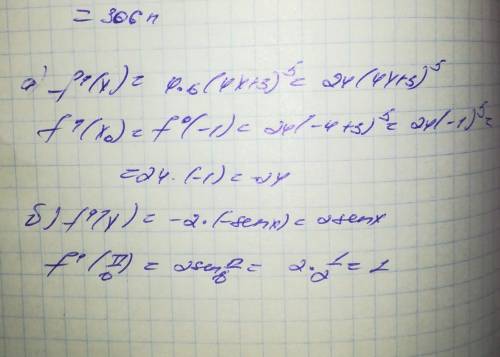 = 306 п
а) f'(x) = 4·6(4x+3)⁵ = 24(4x+3)⁵
f'(x₀) = f'(-1) = 24(-4+3)⁵ = 24(-1)⁵ =
= 24·(-1) = -24
б) f'(x) = -2·(-sinx) = 2sinx
f'(π/6) = 2sin π/6 = 2·1/2 = 1